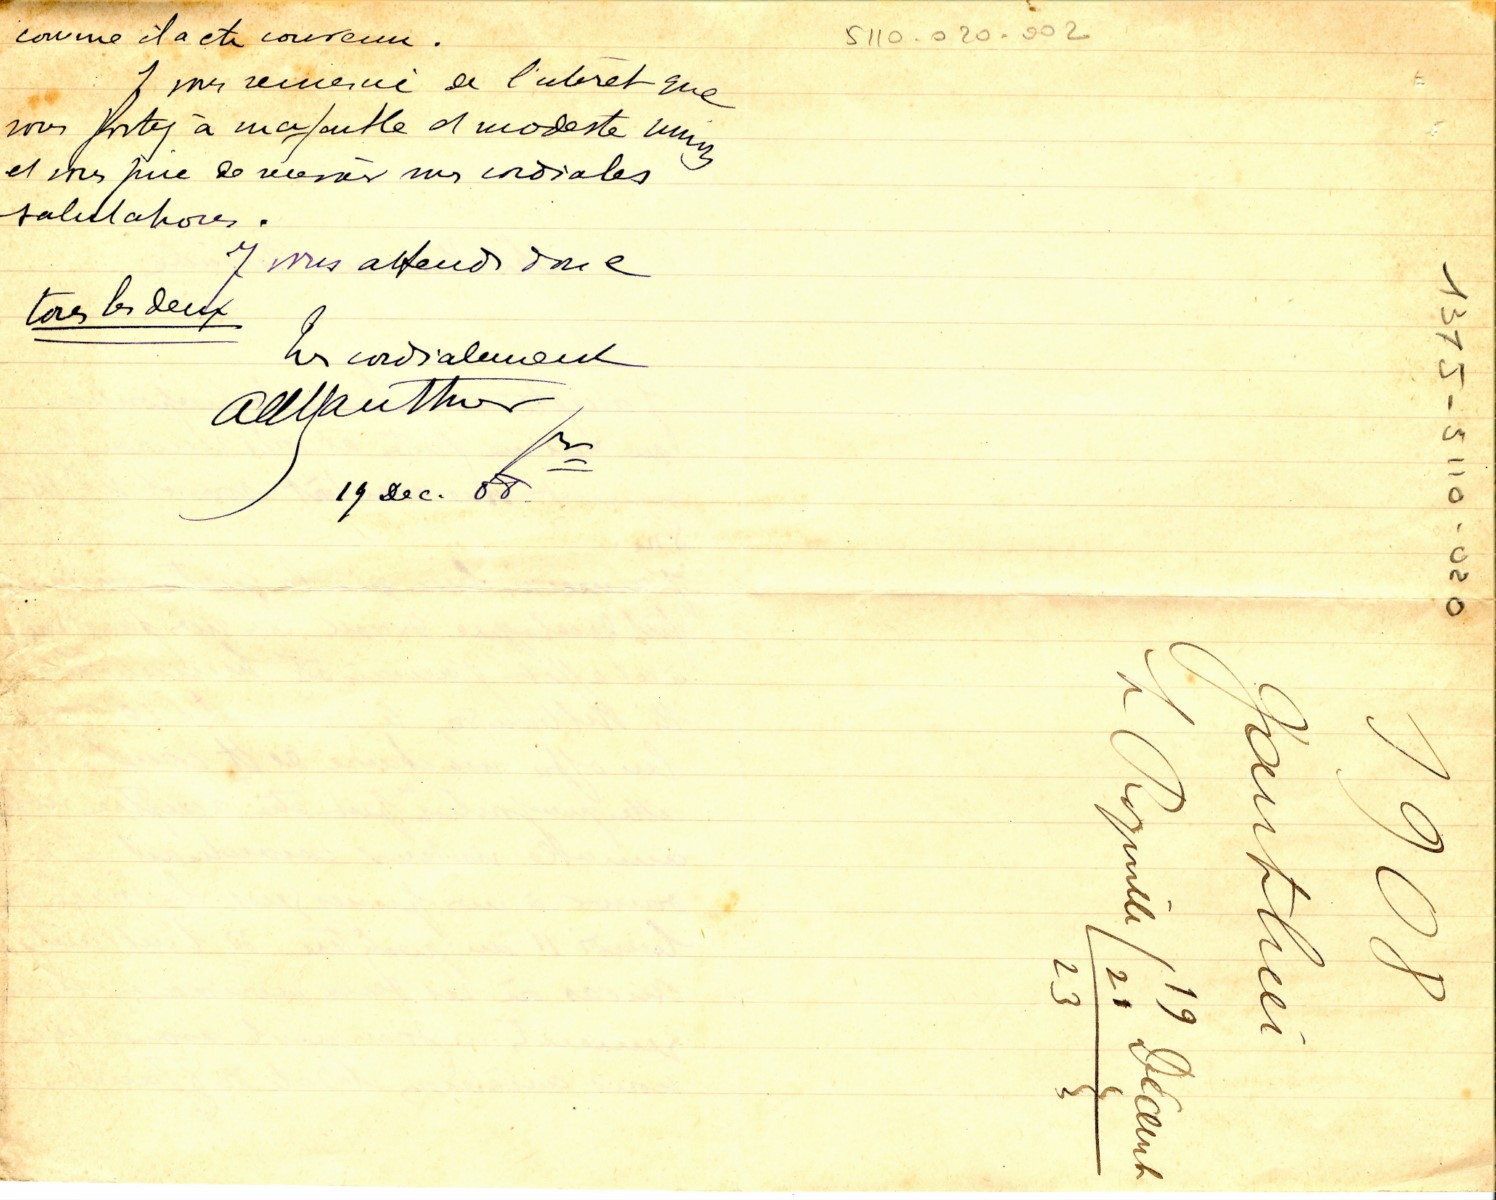 comme il a été convenu.
Je vous remercie de l'intérêt que
vous portez à ma faible et modeste
et vous prie de recevoir mes cordiales
salutations.
Je vous attends donc
tous les deux
Très cordialement
19 Dec. 08.
5110-020-002
1375-5110-020
1908
Gauthier
19 Décemb
21
23